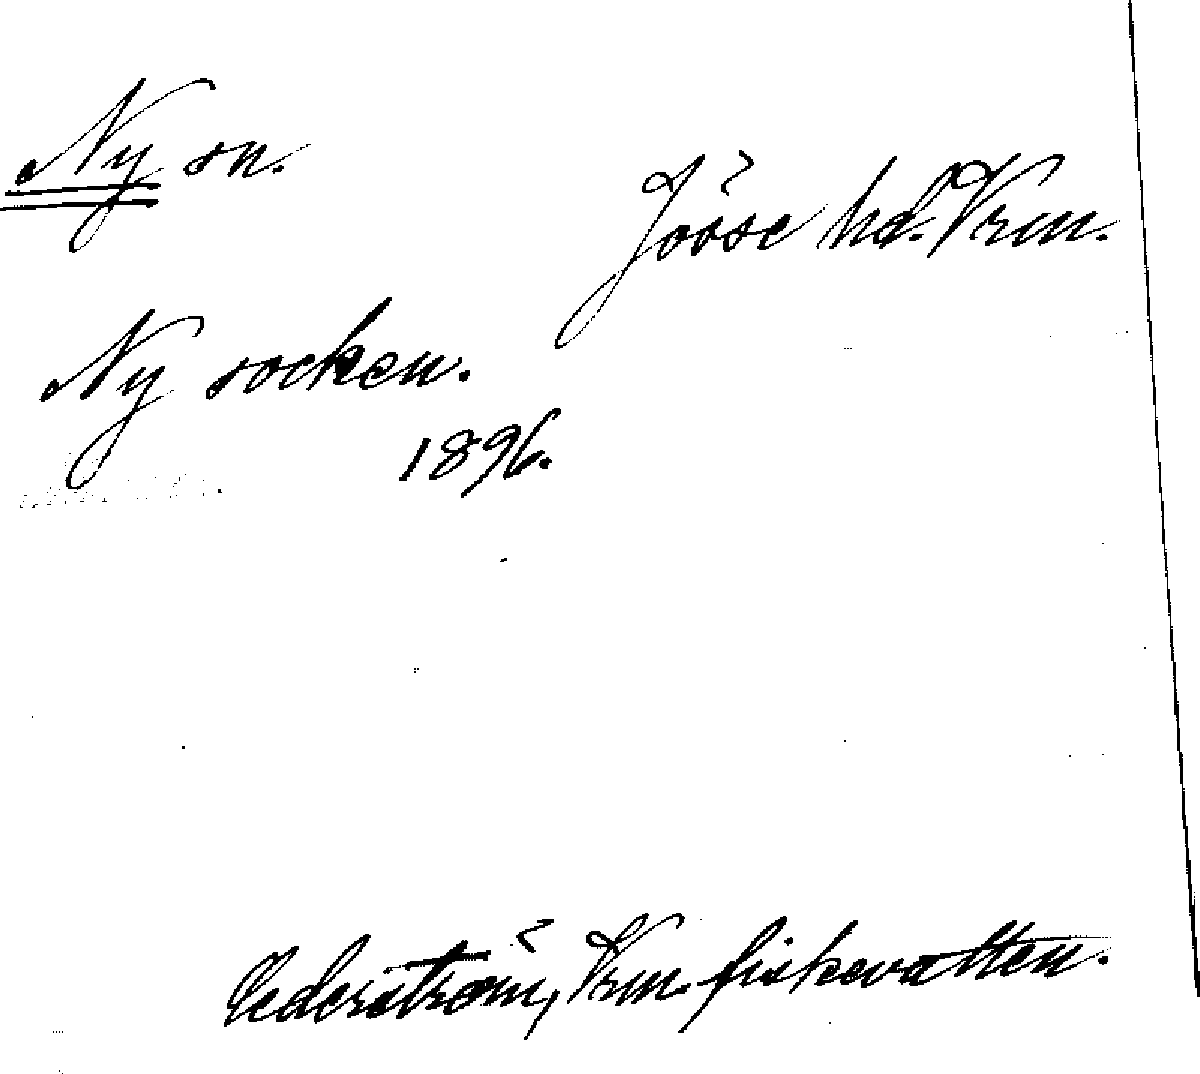 Ny sn.
Jösse hd. Vrm.
Ny socken.
1896.
Cederström, Vrm. fiskevatten.